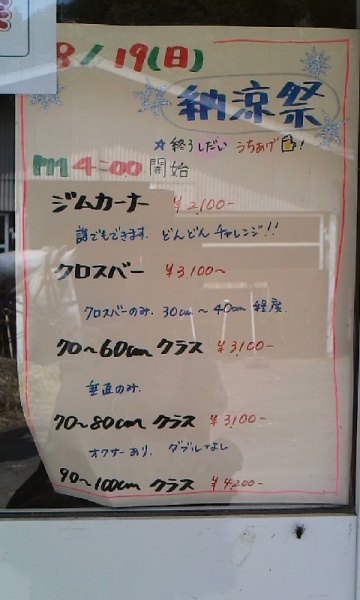 8/19(日)
納涼祭
☆終りしだい うちあげ!
PM 4:00 開始
ジムカーナー ¥2,100-
誰でもできます。どんどん チャレンジ!!
クロスバー ¥3,100～
クロスバーのみ、30cm～40cm 程度。
70～60cm クラス ¥3,100-
垂直のみ。
70～80cm クラス ¥3,100-
オクサーあり、ダブルなし
90～100cm クラス ¥4,200-